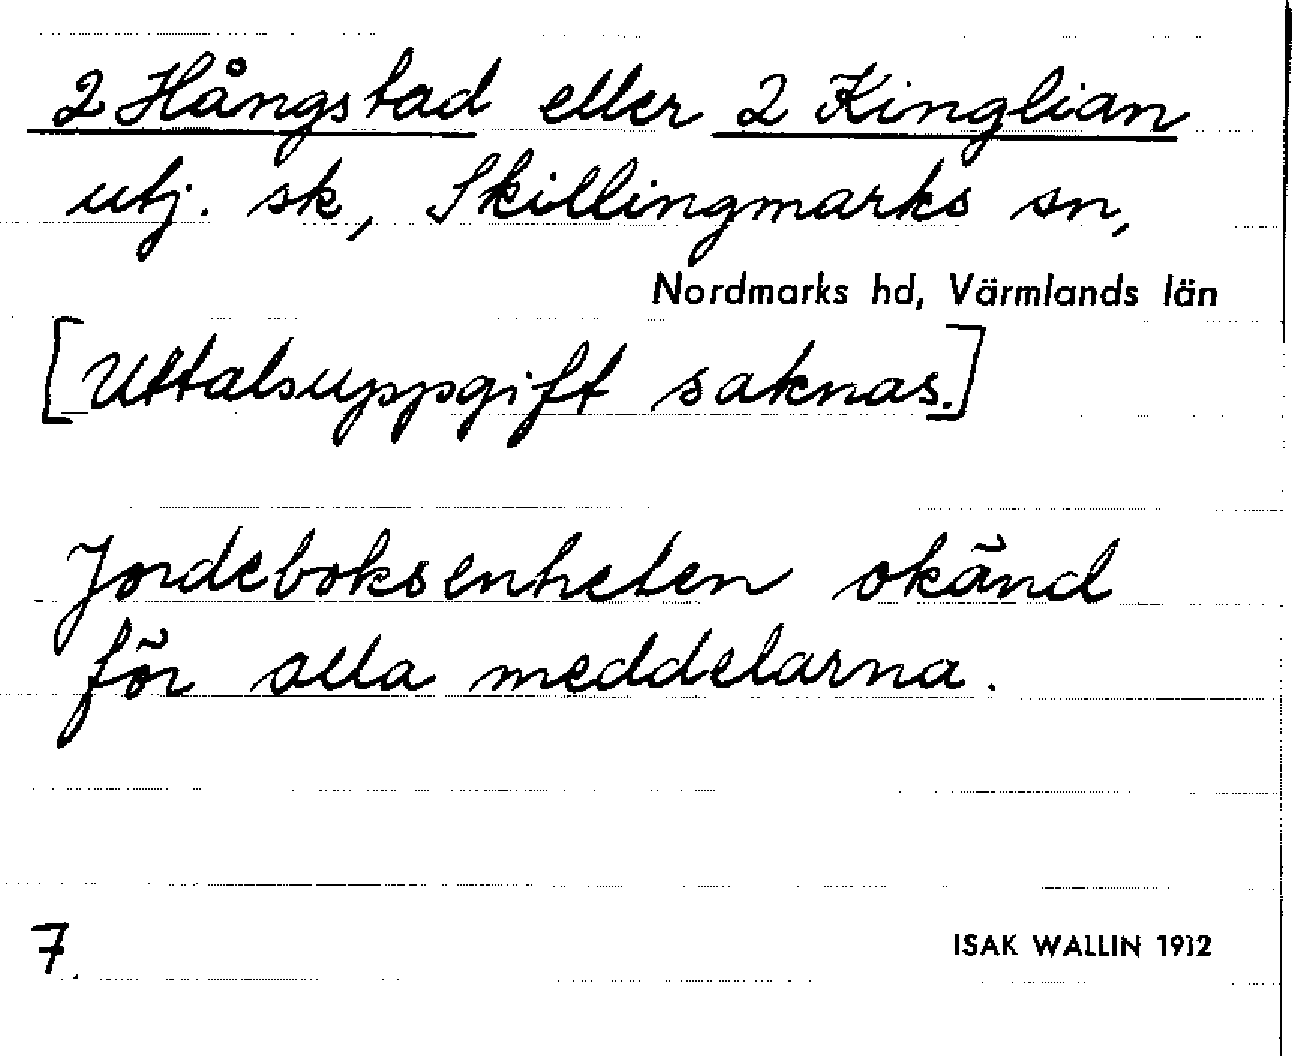 2 Hångstad eller 2 Kinglian
utj. sk, Skillingmarks sn,
Nordmarks hd, Värmlands län
[Uttalsuppgift saknas.]
Jordeboksenheten okänd
för alla meddelarna.
7.
ISAK WALLIN 1912